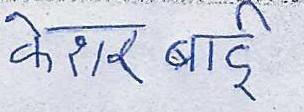 केशर बाई